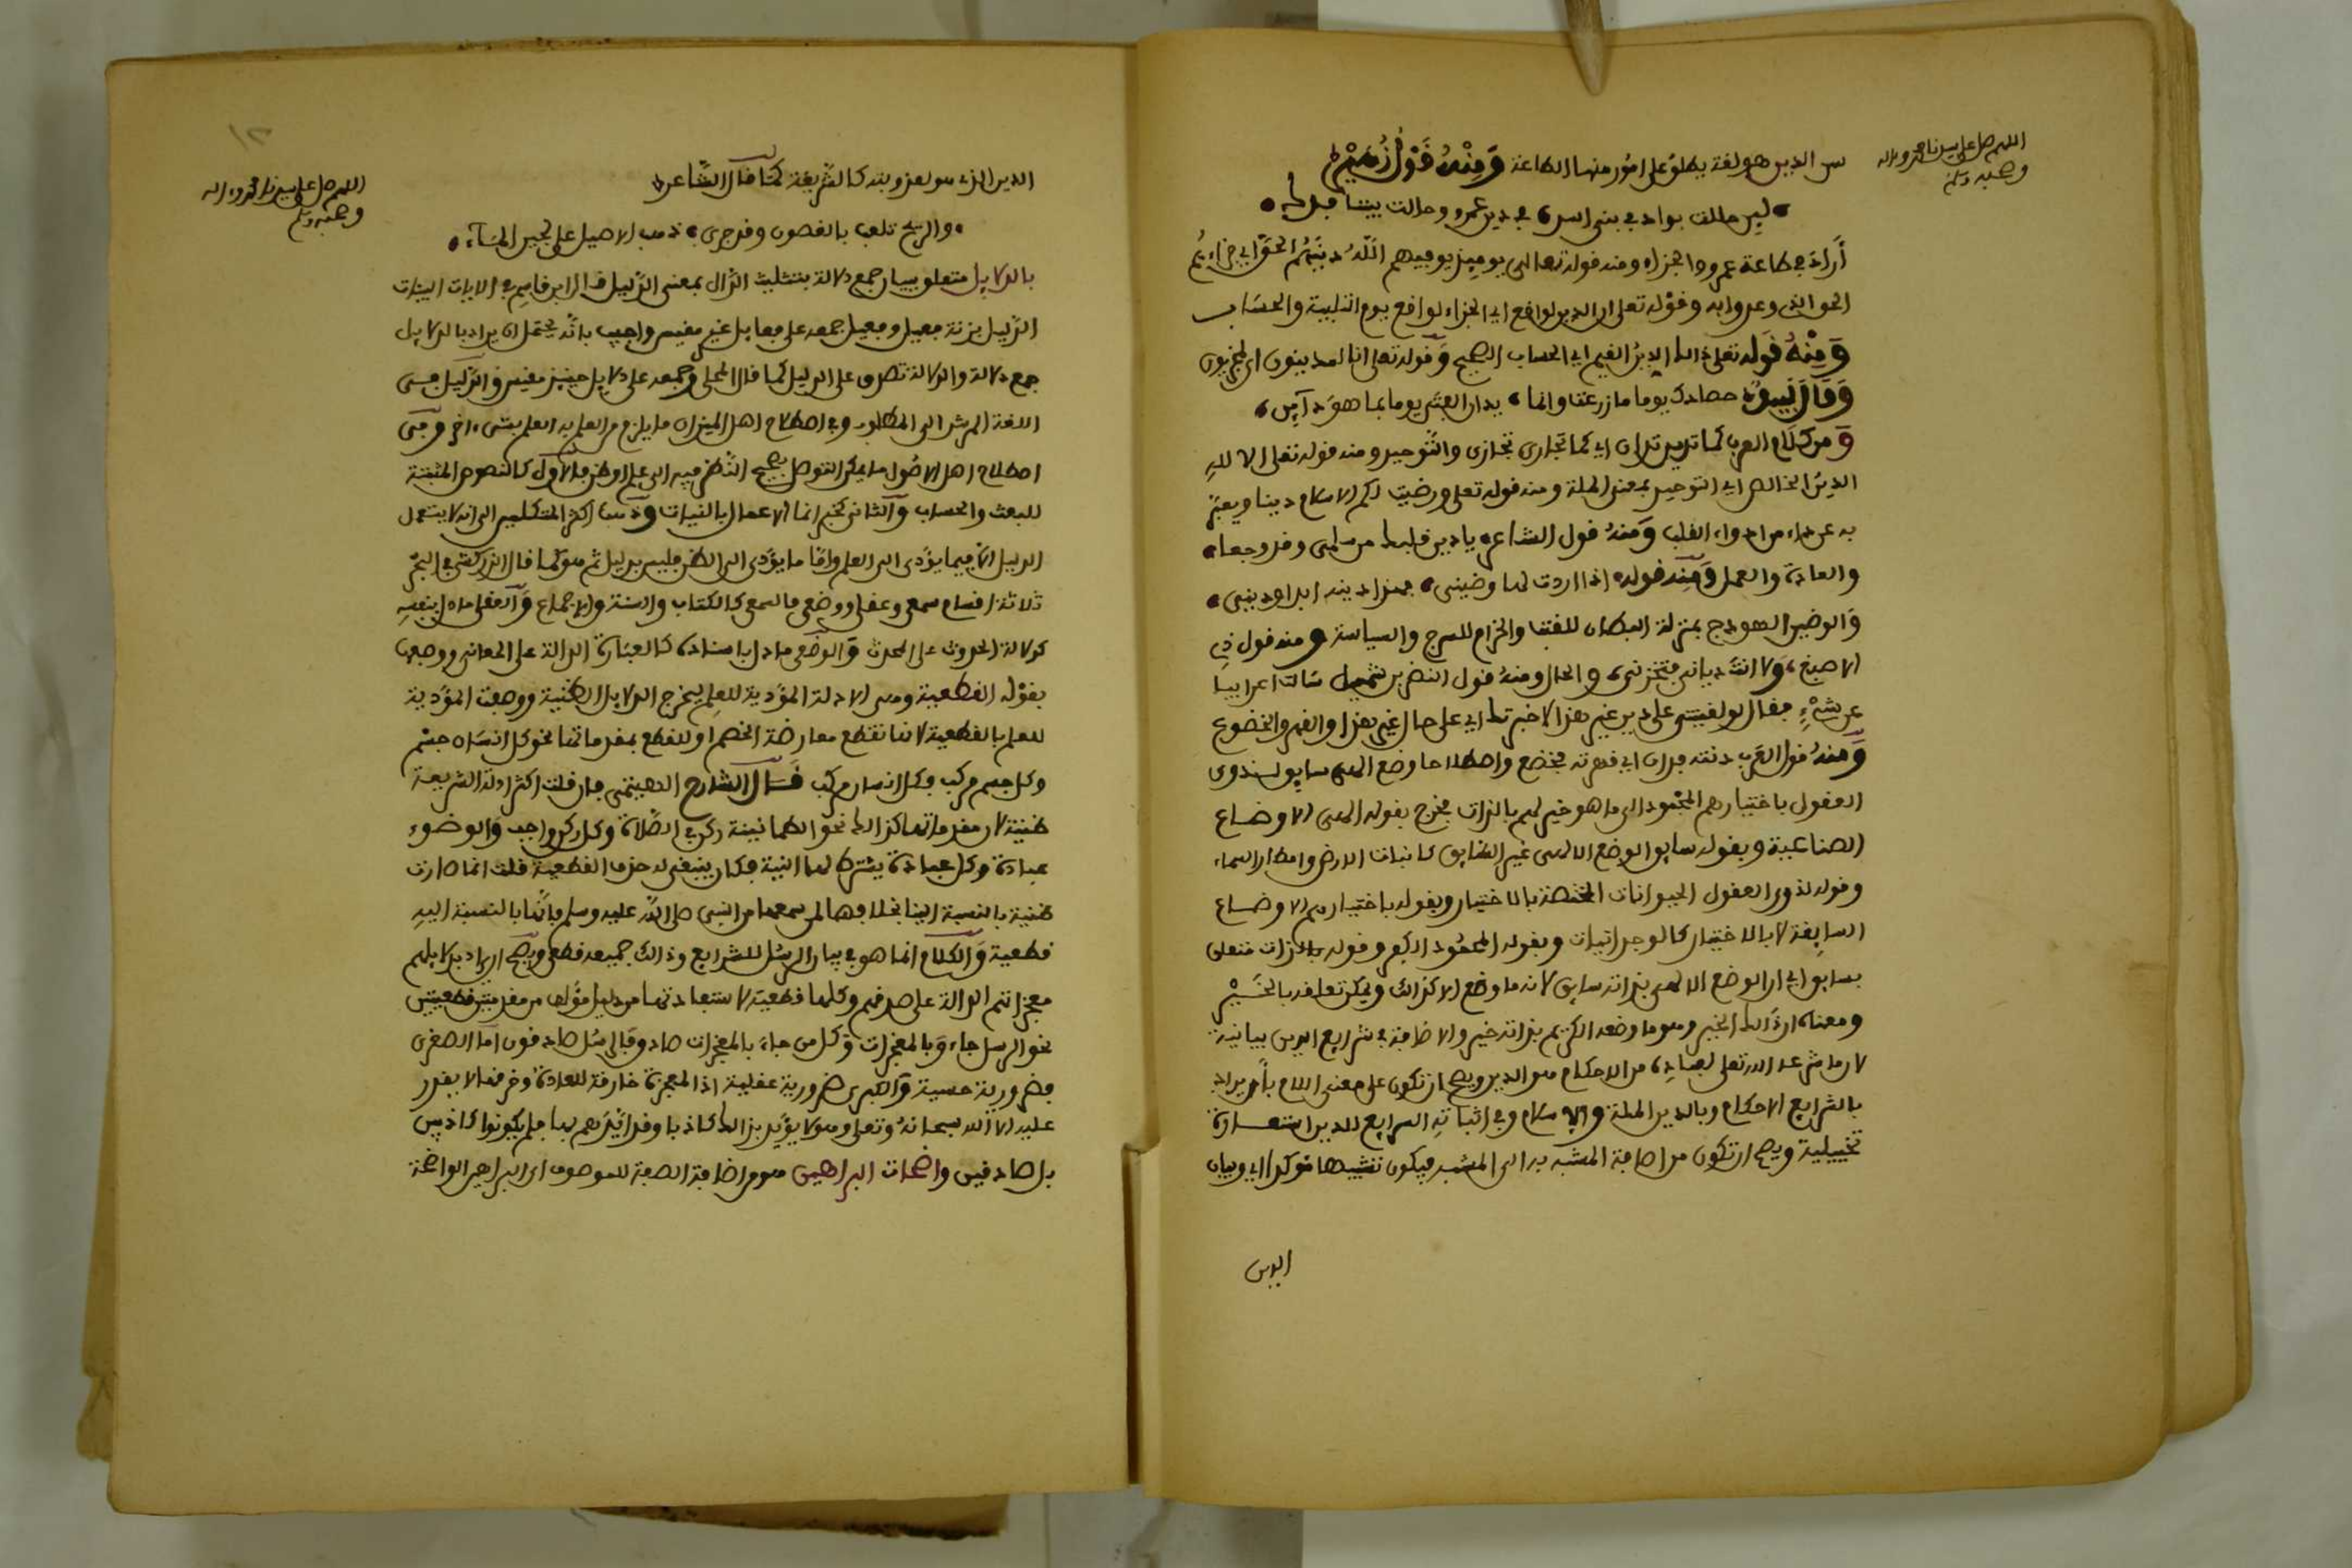 اللهم صل على سيدنا محمد وءاله
وصحبه وسلم
الدين هو لغة يطلق على امور منها الطاعة وَمِنْهُ قَوْلُ زُهَيْرٍ
لين حللت بواد في بني اسد في دين عمرو وحالت بيننا فدك
أراد في طاعة عمرو والجزاء ومنه قوله تعالى يوميذ يوفيهم اللَّهُ دينَهُمُ الحقَّ اي جزاءهم
الحق الذي وعدوا به وقوله تعلى ان الدين لواقع اي الجزاء لواقع يوم التلبية والحساب
وَمِنْهُ قَوله تعلى ذالك الدينُ القيم اي الحساب الصحيح وقوله تعلى انا لمدينون اي لمجزيون
وَقَالَ لَبِيدٌ حصادك يوما ما زرعت وانما يدان الفتى يوما بما هو دآين
وَمن كلام العرب كما تدين تدان اي كما تجازي تجازى والتَّوحيد ومنه قوله تعلى الا للهِ
الدينُ الخالص اي التوحيد بمعنى الملة ومنه قوله تعلى ورضيت لكم الاسلام دينا ويعبَّر
به عن داء من ادواء القلب وَمنهُ قول الشاعر يا دين قلبك من سلمى وقد وجعا
والعادة والعمل وَمِنه قوله اذا اردت لها وضيني اهذا دينه ابدا وديني
وَالوضين الهودج بمنزلة البطان للقتب والحزام للسرج والسياسة ومنه قول ذِي
الاصبع وَلا انتَ دياني فتخزوني والحال ومنهُ قول النضر بن شميل سالت اعرابيا
عن شَيْءٍ فقال لو لقيتني على دين غير هذا لاخبرتك اي على حال غير هذا والقهر والخضوع
وَمنهُ قول العَرب دنته فدان اي قهرته فخضع واصطلاحا وضع الهي سايق لذوي
العقول باختيارهم المحْمُود الى ما هو خير لهم بالذات فخرج بقوله الهى الاوضاع
الصناعية وبقوله سايق الوضع الالهى غير السَّايق كانبات الارض وامطار السماء
وقوله لذوي العقول الحيوانات المختصة بالاختيار وبقوله باختيارهم الاوضاع
السايقة لا بالاختيار كالوجدانيات وبقوله المحمُود الكفر وقوله بالذات متعلق
بسايق اي ان الوضع الالهي بذاته سايق لانه ما وضع الا كذالك ويمكن تعلقه بالخَيْر
ومعناه ان ذالك الخير وهو ما وضعه الكريم بذاته خير والاضافة في شرايع الدين بيانية
لان ما شرعه الله تعلى لعباده من الاحكام هو الدين ويصح ان تكون على معنى اللام بأن يراد
بالشرايع الاحكام وبالدين الملة والاسلام وفي اثباته الشرايع للدين استعارة
تخييلية ويصح ان تكون من اضافة المشبه به الى المشبه فيكون تشبيها مؤكدا اي وبيان
الدين
١٢
اللهم صل على سيدنا محمد وءاله
وصحبه وسلم
الدين الذي هو لعذوبته كالشَّريعة كمَا قال الشَّاعر
والريح تلعب بالغصون وقد جرى ذهب الاصيل على لجين المآء
بالدلايل متعلق ببيان جمع دلالة بتثليث الدَّال بمعنى الدَّليل قال ابن قاسم في الايات البينات
الدَّليل بزنة فعيل وفعيل جمعه على فعايل غير مقيس واجيب بانَّه يحتمل ان يراد بالدلايل
جمع دلالة والدلالة تطلق على الدليل كما قال المحلي وجمعه على دلايل حينيذ مقيس والدَّليل فى
اللغة المرشد الى المطلوب وفي اصطلاح اهل الميزان ما يلزم من العلم به العلم بشىء اخر وفى
اصطلاح اهل الاصُول ما يمكن التوصل بصحيح النَّظر فيه الى علم او ظن فالاوّل كالنصوص المثبتة
للبعث والحساب وَالثاني كخبر انما الاعمال بالنيات وذهب اكثر المتكلمين الى انه لا يستعمل
الدليل الا فيما يؤدى الى العلم وامَّا ما يؤدى الى الظن فليس بدليل ثم هو كما قال الزركشي في البحر
ثلاثة اقسام سمعي وعقلي ووضعي فالسمعي كالكتاب والسنة والاجماع وَالعقلي ما دل بنفسه
كدلالة الحدوث على المحدث وَالوضعي ما دل باسناده كالعبَارة الدالة على المعاني ووصفها
بقوْله القطعية وهى الادلة المؤدية للعلم ليخرج الدلايل الظنية ووصفت المؤدية
للعلم بالقطعية لانها تقطع معارضة الخصم او للقطع بمقدماتها نحو كل انسَان جسْم
وكل جسم مركب فكل انسان مركب قَال الشَّارح الهيتمي فان قلت اكثر ادلة الشريعة
ظنية لان مقدماتها كذالك نحو الطمانينة ركن في الصَّلاة وكل ركن واجب وَالوضوء
عبادة وكل عبادة يشترط لها النية فكان ينبغي له حذف القطعية قلت انما صارت
ظنية بالنسبة الينا بخلافها لمن سمعها من النبى صلى اللَّه عليه وسلم فانَّها بالنسبة اليهِ
قطعية وَالكلام انما هو في بيان الرسُل للشرايع وذالك جميعه قطعي ويصح ان يراد بدلايلهم
معجزاتهم الدالة على صدقهم وكلها قطعية لاستفادتها من دليل مؤلف من مقدمتين قطعيتين
نحو الرسل جاءوَا بالمعجزات وَكل من جاءَ بالمعجزات صادق فالرسُل صادقون امَّا الصغرى
فضرورية حسية وَالكبرى ضرورية عقلية اذ المعجزة خارقة للعادة وخرقها لا يقدر
عليه الا الله سبحانهُ وتعلى وهو لا يؤيّد بذالك كاذبا وقد ايَّدَهم بها فلم يكونوا كاذبين
بل صادقين واضحات البراهين هو من اضافة الصفة للموصوف اي البراهين الواضحة